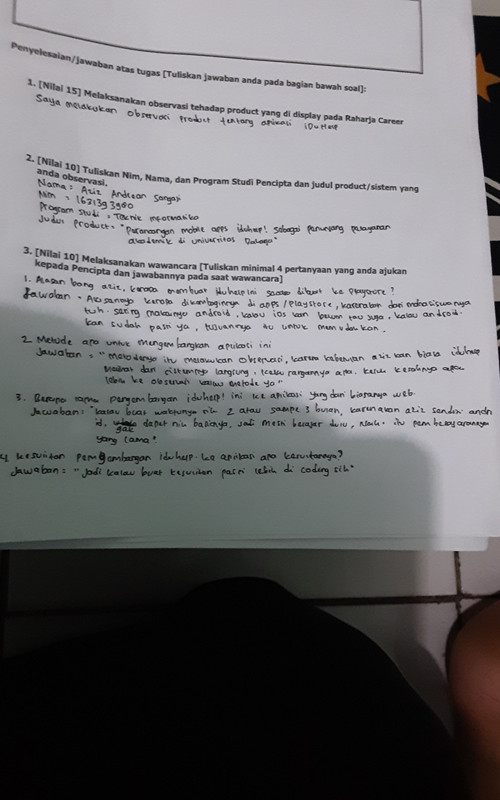 Penyelesaian/jawaban atas tugas [Tuliskan jawaban anda pada bagian bawah soal]:
1. [Nilai 15] Melaksanakan observasi tehadap product yang di display pada Raharja Career
Saya melakukan observasi product tentang aplikasi iDuHelp
2. [Nilai 10] Tuliskan Nim, Nama, dan Program Studi Pencipta dan judul product/sistem yang
anda observasi.
Nama: Aziz Andrean Sangaji
Nim :
Program Studi : Teknik informatika
Judul Product: "Perancangan mobile apps iduhelp! Sebagai penunjang pelayanan
akademik di universitas Raharja"
3. [Nilai 10] Melaksanakan wawancara [Tuliskan minimal 4 pertanyaan yang anda ajukan
kepada Pencipta dan jawabannya pada saat wawancara]
1. Alasan bang aziz, kenapa membuat iduhelp ini dibuat ke Playstore?
Jawaban : Alasannya kenapa dikembanginnya di apps/Playstore, dari mahasiswanya
tuh. sering makainya android, kalau ios kan belum tau juga, kalau android
kan sudah pasti ya, tujuannya itu untuk memudahkan.
2. Metode apa untuk mengembangkan aplikasi ini
Jawaban : "Metodenya itu melakukan observasi, karena kebetulan aziz kan biasa iduhelp
dari sistemnya langsung, kekurangannya apa.
lebih ke observasi kalau metode ya"
3. Berapa lama pengembangan iduhelp! ini ke aplikasi yang dari biasanya web.
Jawaban: "kalau buat waktunya sih 2 atau sampe 3 bulan, karena kan aziz sendiri andro
id, gak dapet nih basicnya, jadi mesti belajar dulu, itu pembelajarannya
yang lama"
4. kesulitan pengembangan Iduhelp ke aplikasi apa kesulitannya?
Jawaban: "Jadi kalau buat kesulitan pasti lebih di coding sih"